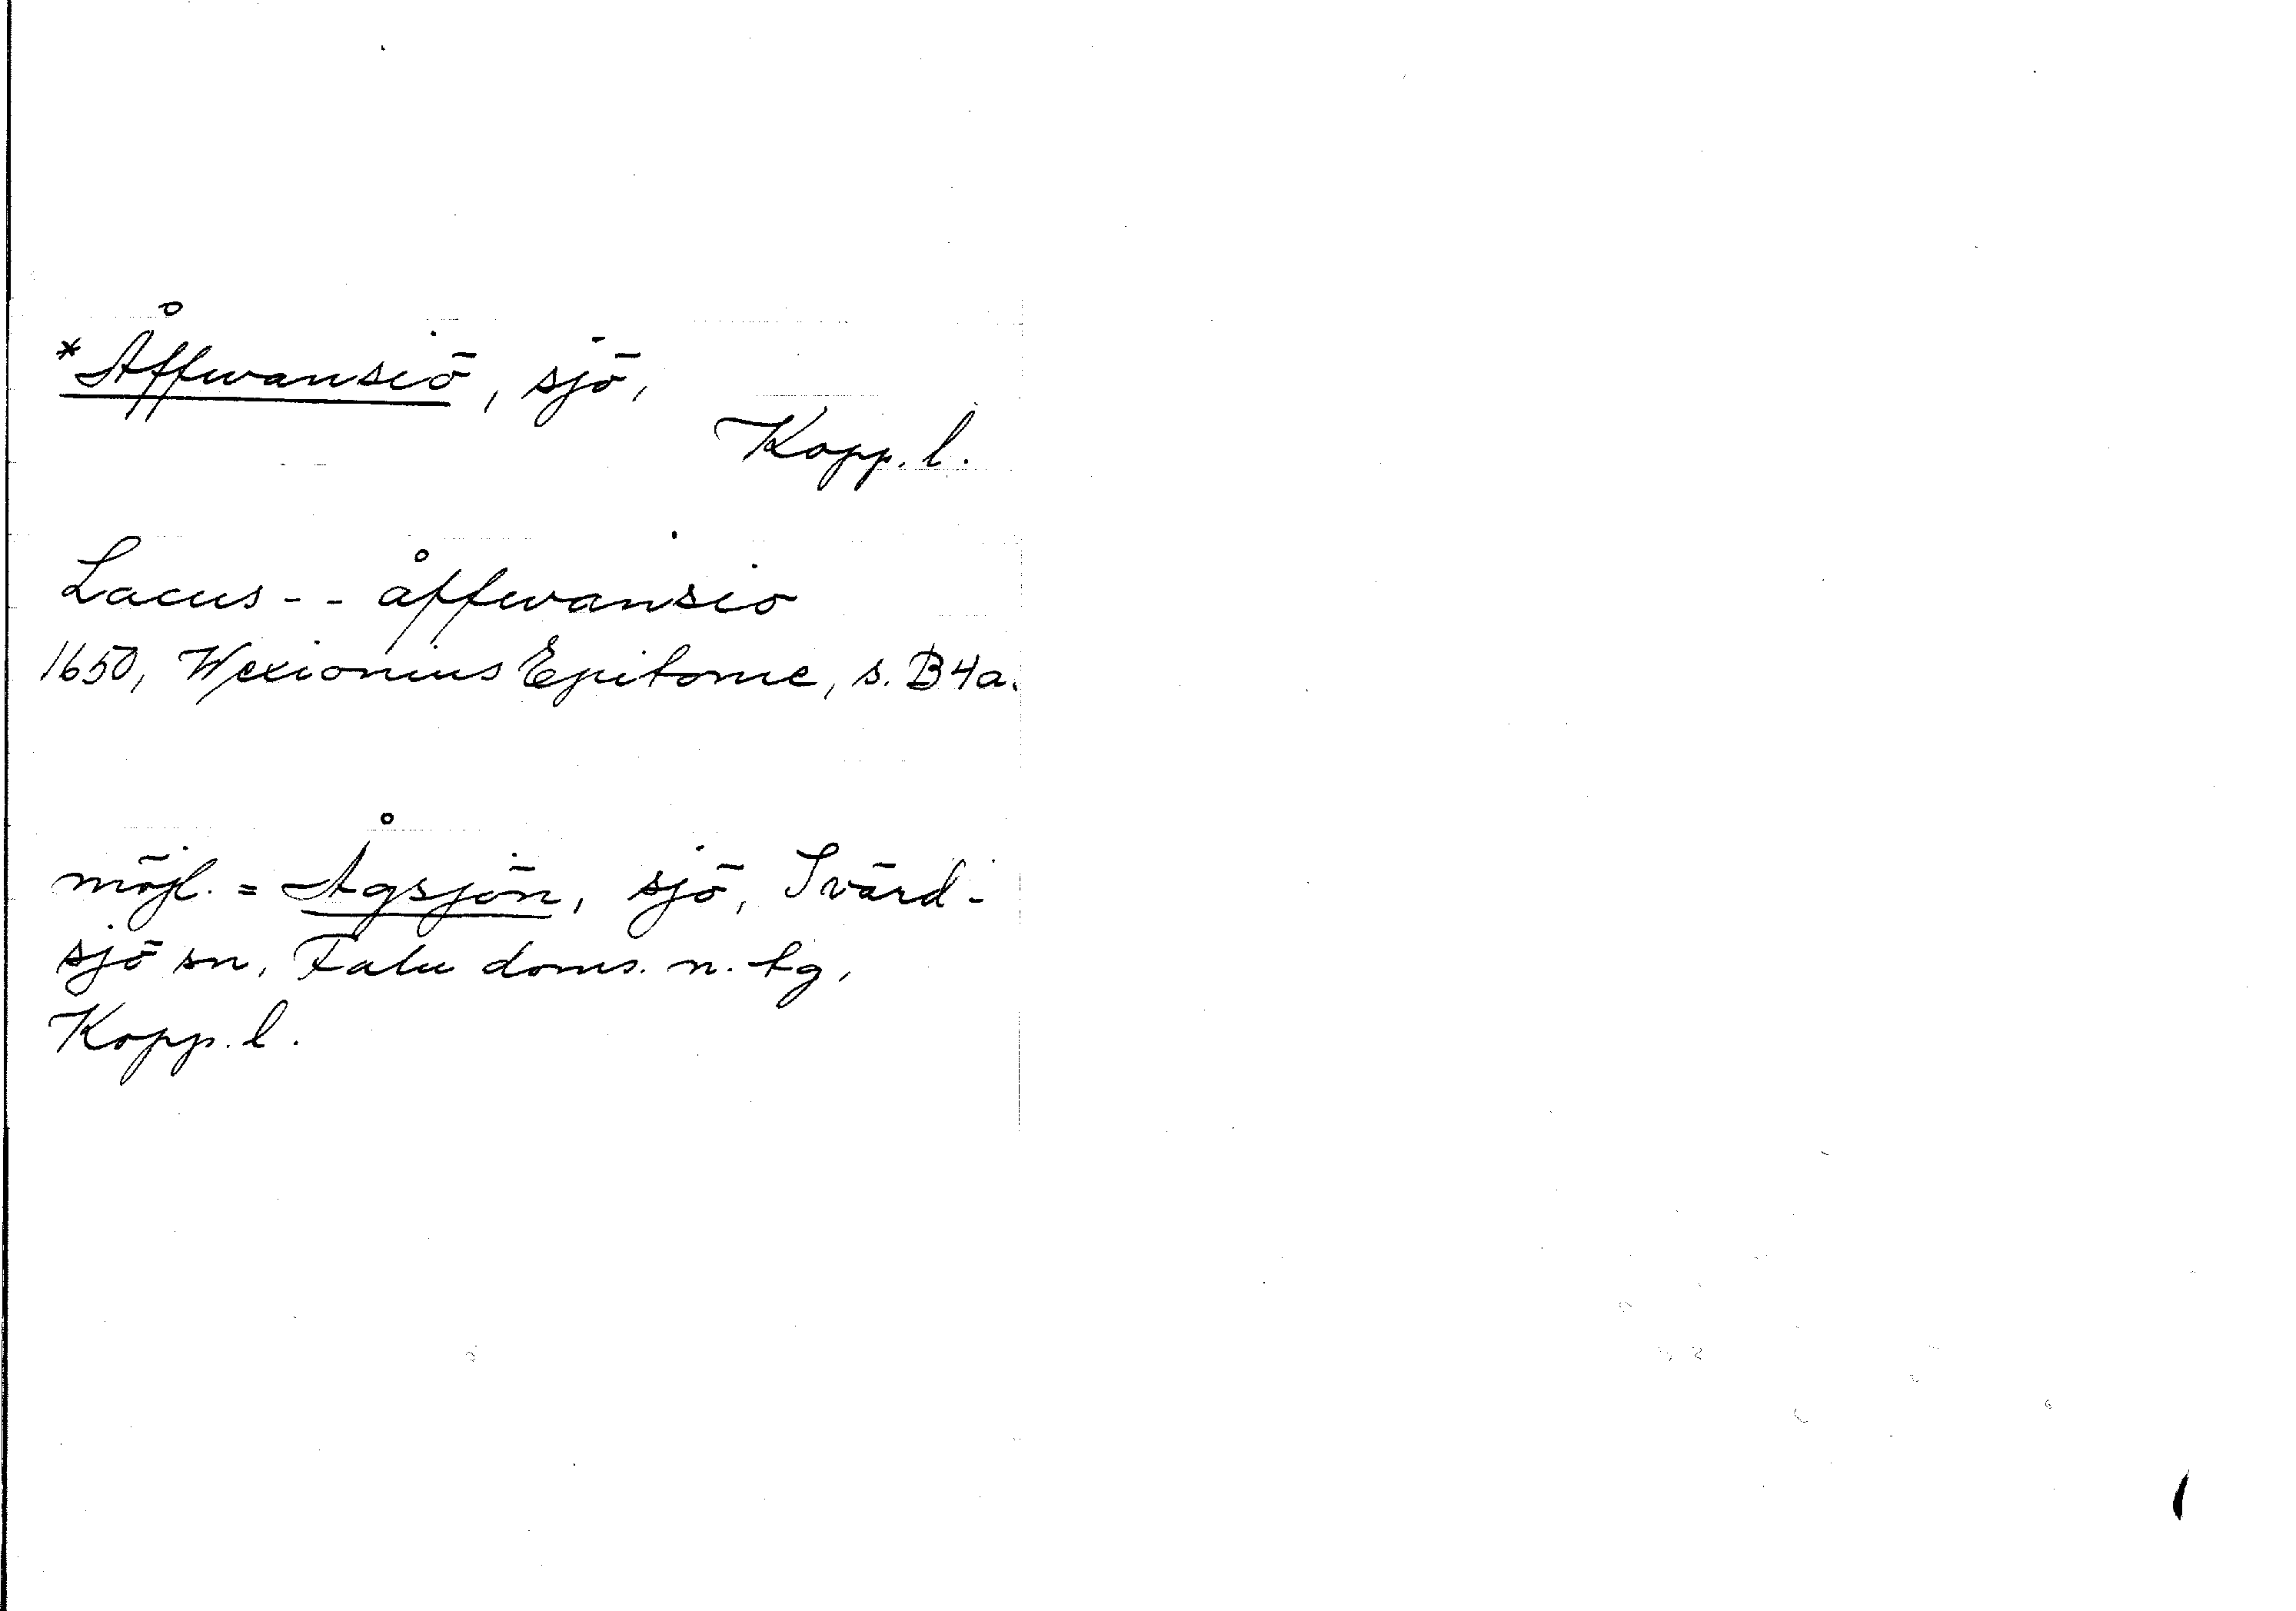 *Åffwansiö, sjö,
Kopp. l.
Lacus - - åffwansio
1650, Wexionius Epitome, s. B4a.
möjl. = Ågsjön, sjö, Svärd-
sjö sn, Falu doms. n. tg,
Kopp. l.